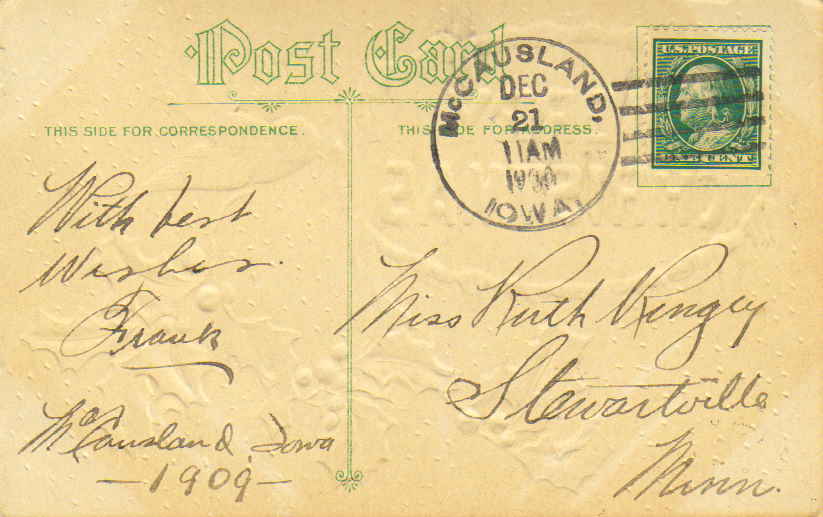 Post Card
THIS SIDE FOR CORRESPONDENCE.
THIS SIDE FOR ADDRESS.
McCAUSLAND,
DEC
21
11AM
IOWA.
U.S. POSTAGE
With best
Wishes.
Frank
McCausland, Iowa
-1909-
Miss Ruth Ringey
Stewartville
Minn.